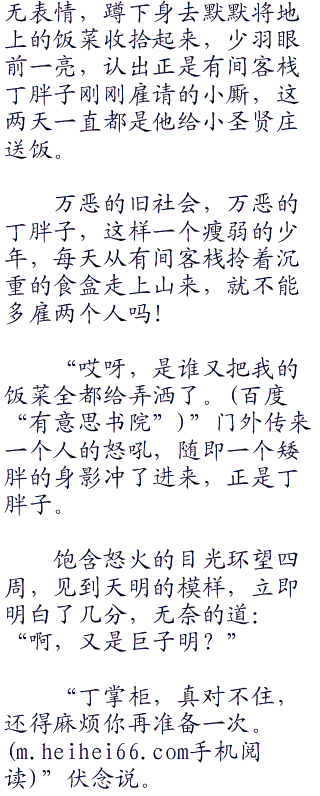 无表情，蹲下身去默默将地
上的饭菜收拾起来，少羽眼
前一亮，认出正是有间客栈
丁胖子刚刚雇请的小厮，这
两天一直都是他给小圣贤庄
送饭。
万恶的旧社会，万恶的
丁胖子，这样一个瘦弱的少
年，每天从有间客栈拎着沉
重的食盒走上山来，就不能
多雇两个人吗！
“哎呀，是谁又把我的
饭菜全都给弄洒了。(百度
“有意思书院”)”门外传来
一个人的怒吼，随即一个矮
胖的身影冲了进来，正是丁
胖子。
饱含怒火的目光环望四
周，见到天明的模样，立即
明白了几分，无奈的道：
“啊，又是巨子明？”
“丁掌柜，真对不住，
还得麻烦你再准备一次。
(m.heihei66.com手机阅
读)”伏念说。